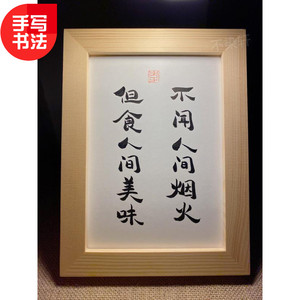 手写
书法
不闻人间烟火
但食人间美味